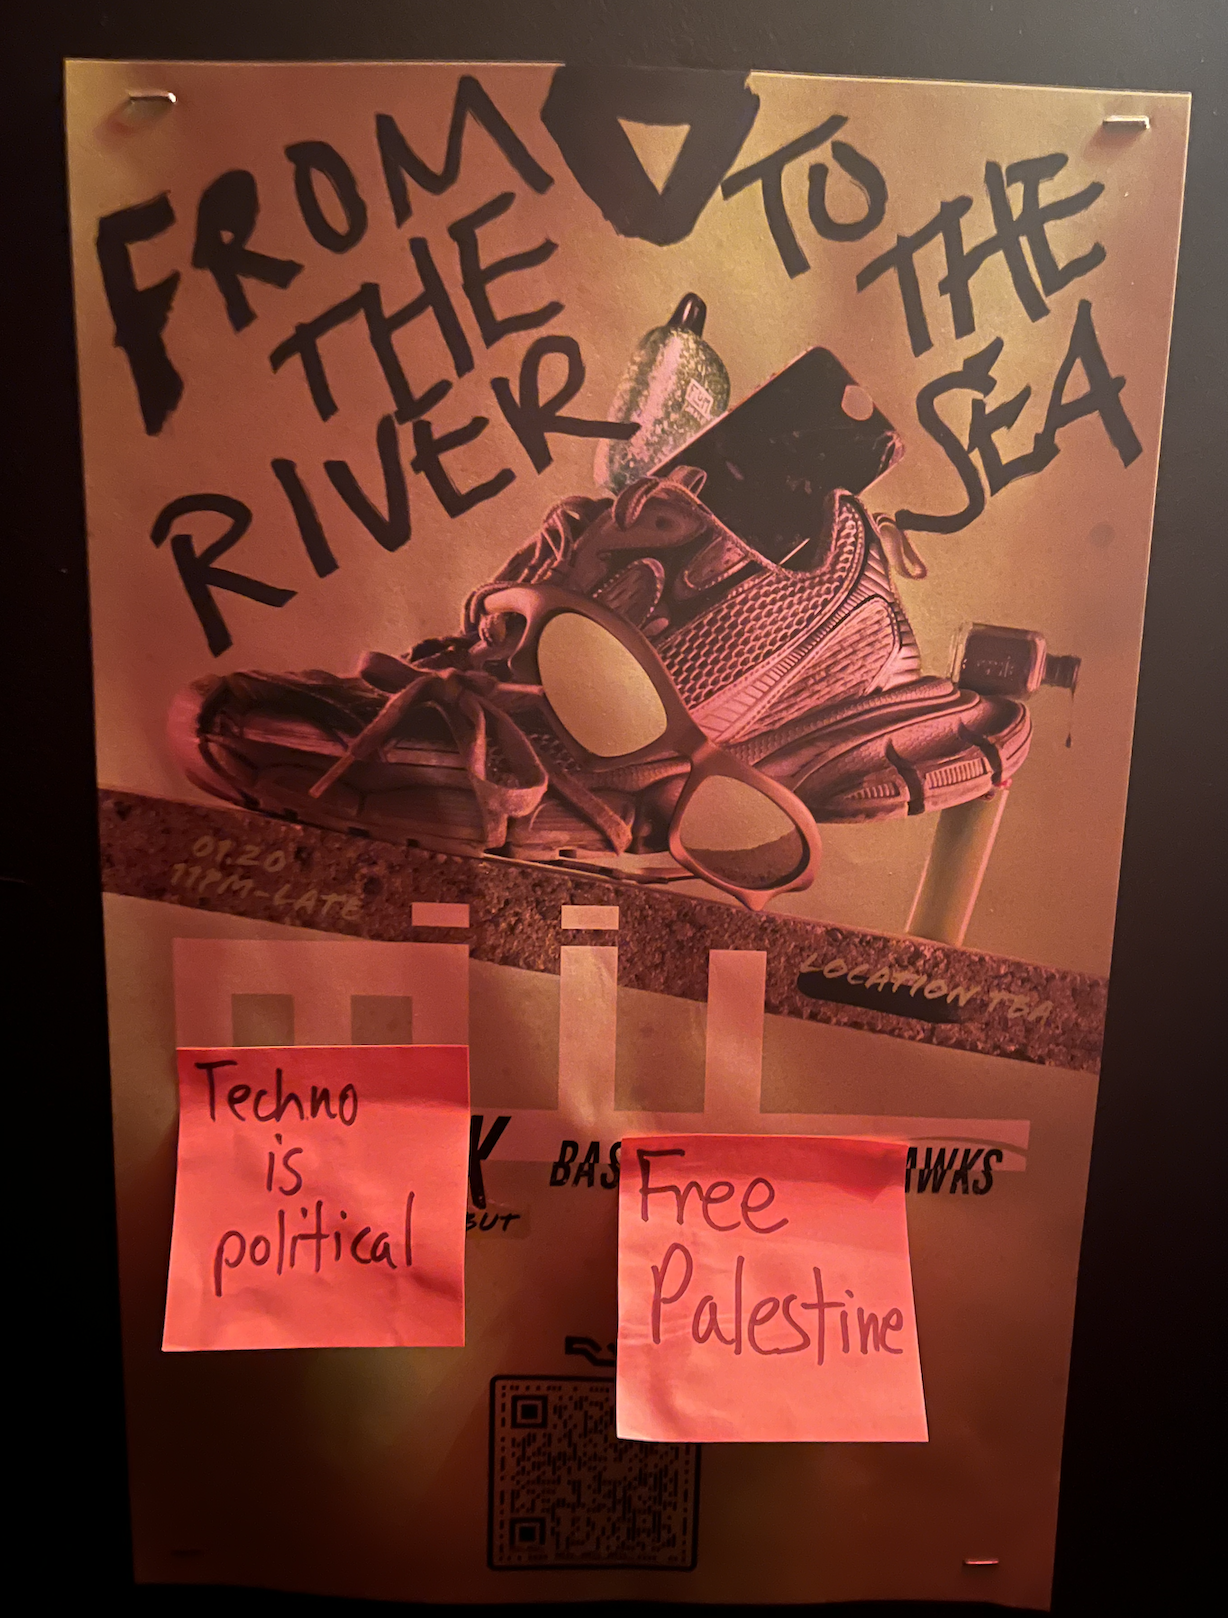 FROM
THE
RIVER
TO
THE
SEA
01.20
11PM-LATE
LOCATION TBA
Techno
is
political
K
BUT
BAS
AWKS
Free
Palestine